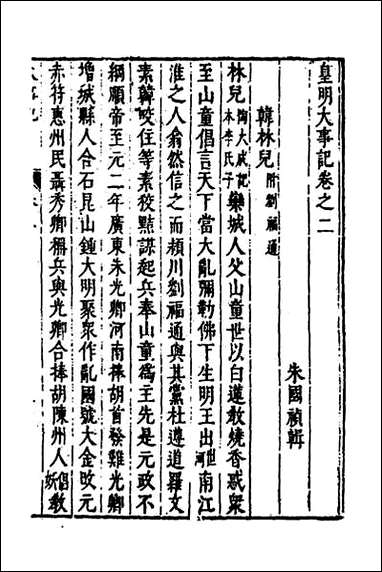 皇明大事記卷之二
朱國禎輯
韓林兒附劉福通
林兒陶大成記本李氏子欒城人父山童世以白蓮教燒香惑衆
至山童倡言天下當大亂彌勒佛下生明王出世河南江
淮之人翕然信之而潁川劉福通與其黨杜遵道羅文
素韓咬住等素狡黠謀起兵奉山童爲主先是元政不
綱順帝至元二年廣東朱光卿河南棒胡首發難光卿
增城縣人合石昆山鍾大明聚衆作亂國號大金改元
赤符惠州民聶秀卿稱兵與光卿合捧胡陳州人倡妖教